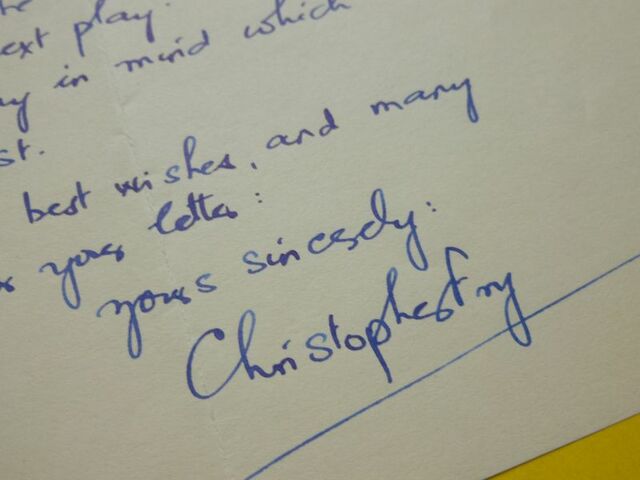 next play.
in mind which
best wishes, and many
your letter:
yours sincerely:
Christopher Fry